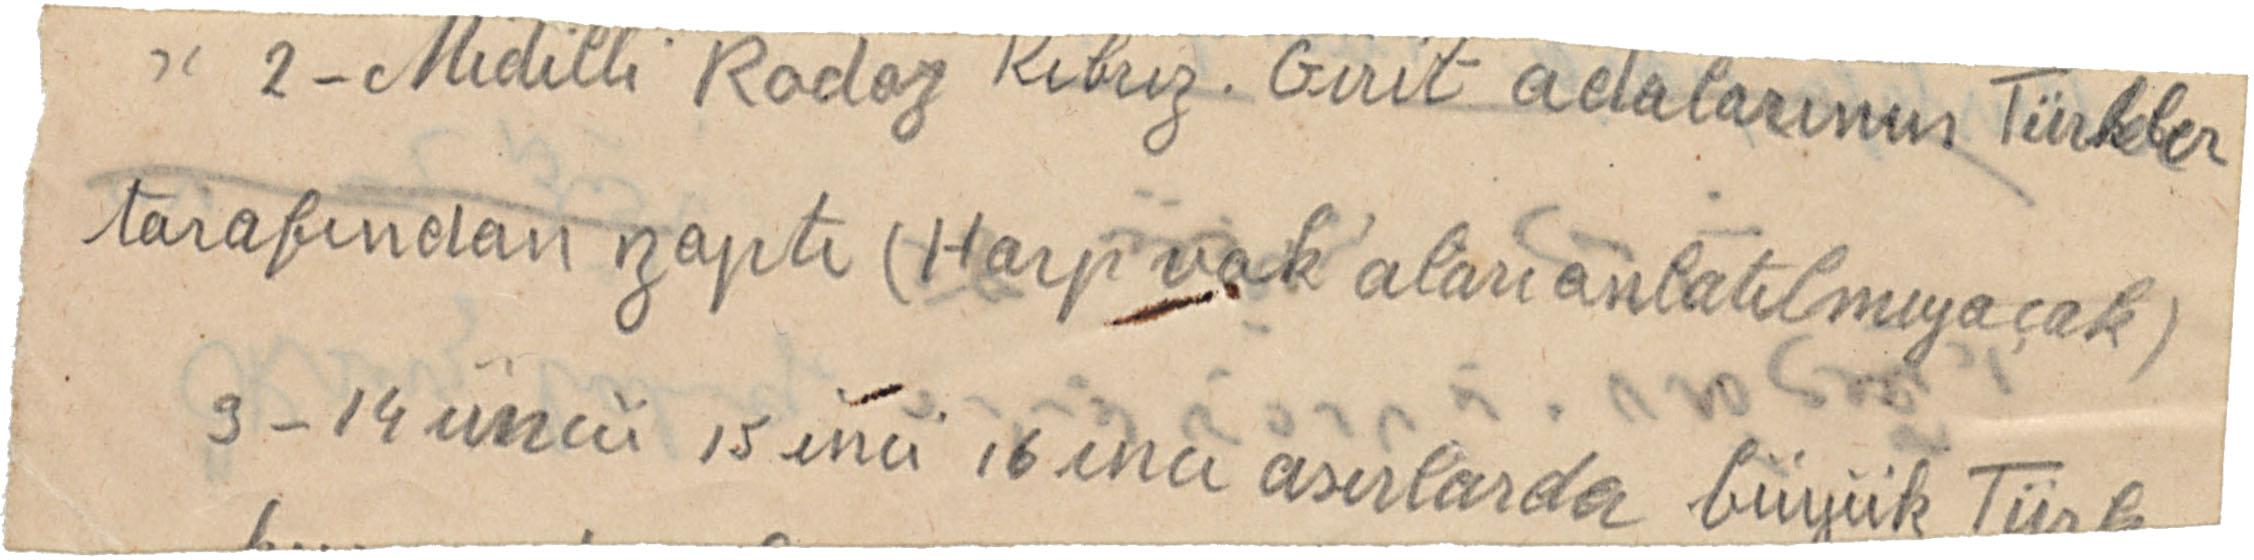 x 2 - Midilli Rodoz Kıbrız. Girit adalarının Türkler
tarafından zaptı (Harp vak'aları anlatılmıyaçak)
3 - 14 üncü 15 inci 16 ıncı asırlarda büyük Türk